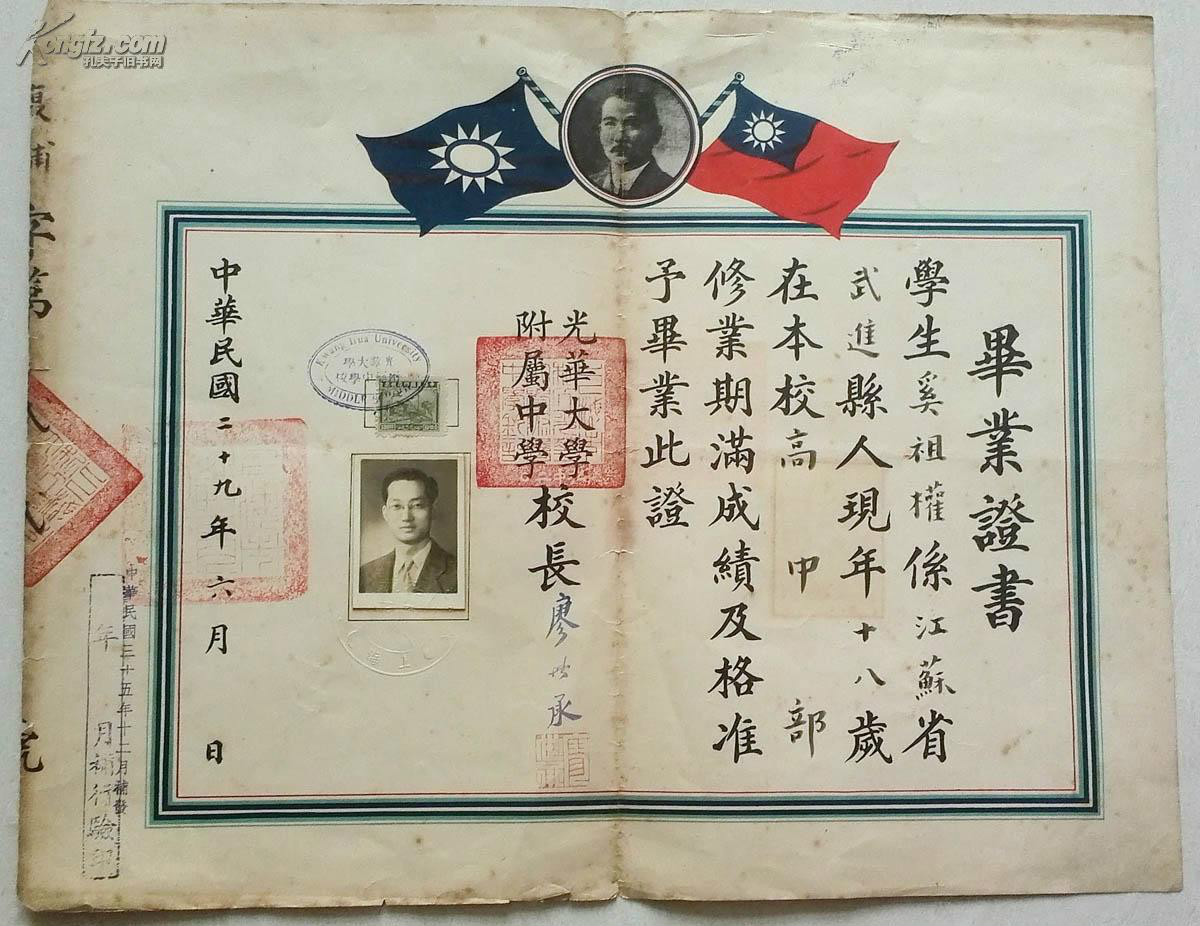 Kongfz.com
孔夫子旧书网
畢業證書
學生奚祖權係江蘇省
武進縣人現年十八歲
在本校高中部
修業期滿成績及格准
予畢業此證
光華大學
附屬中學
校長廖世承
Kwang Hua University
光華大學
附屬中學校
中華民國二十九年六月 日
中華民國三十五年十二月補發
年 月補行驗印
復補字第
號